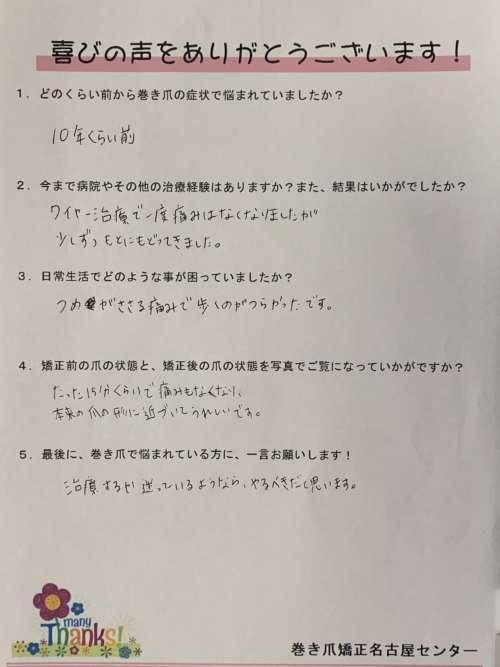 喜びの声をありがとうございます！
1．どのくらい前から巻き爪の症状で悩まれていましたか？
10年くらい前
2．今まで病院やその他の治療経験はありますか？また、結果はいかがでしたか？
ワイヤー治療で一度痛みはなくなりましたが
少しずつもとにもどってきました。
3．日常生活でどのような事が困っていましたか？
つめがささる痛みで歩くのがつらかったです。
4．矯正前の爪の状態と、矯正後の爪の状態を写真でご覧になっていかがですか？
たった15分くらいで痛みもなくなり、
本来の爪の形に近づいてうれしいです。
5．最後に、巻き爪で悩まれている方に、一言お願いします！
治療するか迷っているようなら、やるべきだと思います。
many
Thanks!
巻き爪矯正名古屋センター